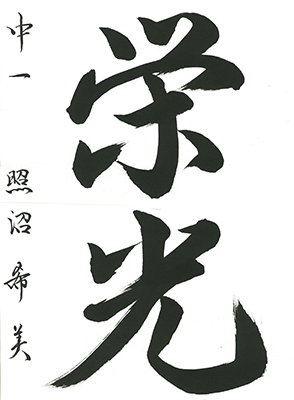 栄光
中一 照沼希美